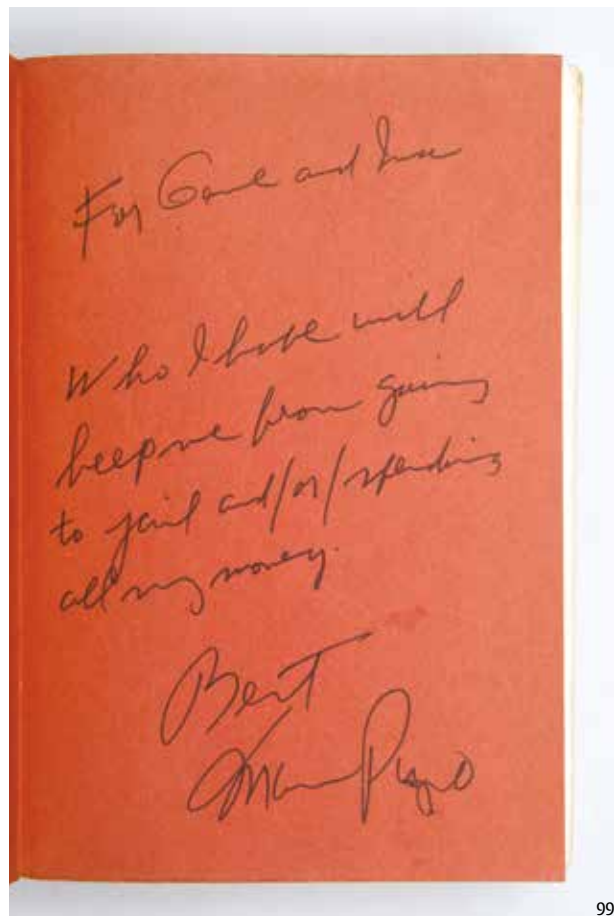 For Gone and
Who I hope will
keep me from going
to jail and/or/spending
all my money.
Best
Mario Puzo
99